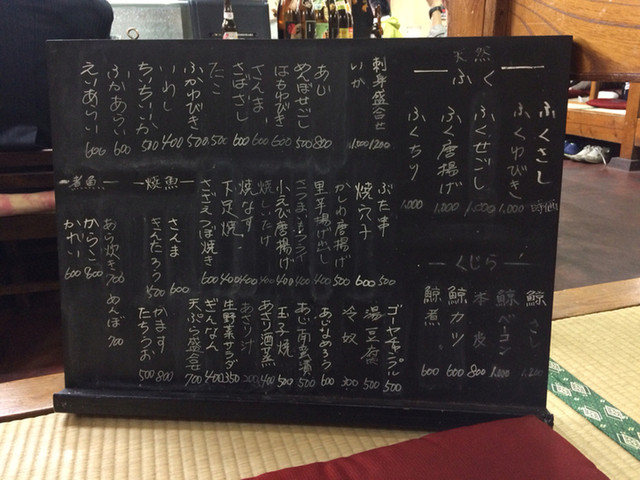 天然
ふく
ふくさし 時価
ふくゆびき 1,000
ふくせごし 1,000
ふく唐揚げ 1,000
ふくちり 1,000
くじら
鯨さし 1,200
鯨ベーコン 1,000
本皮 800
鯨カツ 600
鯨煮 600
刺身盛合せ 1200
いか 1,000
あじ 800
めんぼせごし 500
はもゆびき 600
さんま 600
さばさし 600
たこ 500
ふかゆびき 500
いわし 400
ちちいか 500
ふかあらい 600
えりあらい 600
ぶた串 500
焼穴子 600
かしわ唐揚げ 500
里芋揚げ出し 400
さつまいもフライ 400
小えび唐揚げ 400
焼しいたけ 400
焼なす 400
下足焼 400
さざえつぼ焼き 600
焼魚
さんま 600
きんたろう 500
かます 800
たちうお 500
煮魚
あら炊き 700
めんぼ 700
からこ 800
かれい 600
ゴーヤチャンプル 500
湯豆腐 500
冷奴 300
あじ南蛮漬 500
玉子焼 500
あさり酒蒸 400
あさり汁
生野菜サラダ 350
ぎんなん 400
天ぷら盛合 700